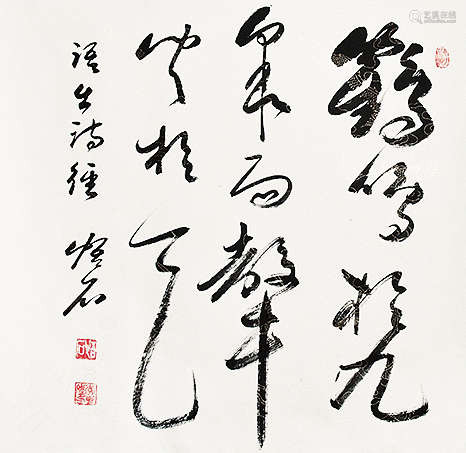 鶴鳴於九
皋而聲
聞於天
語出詩經 悟石